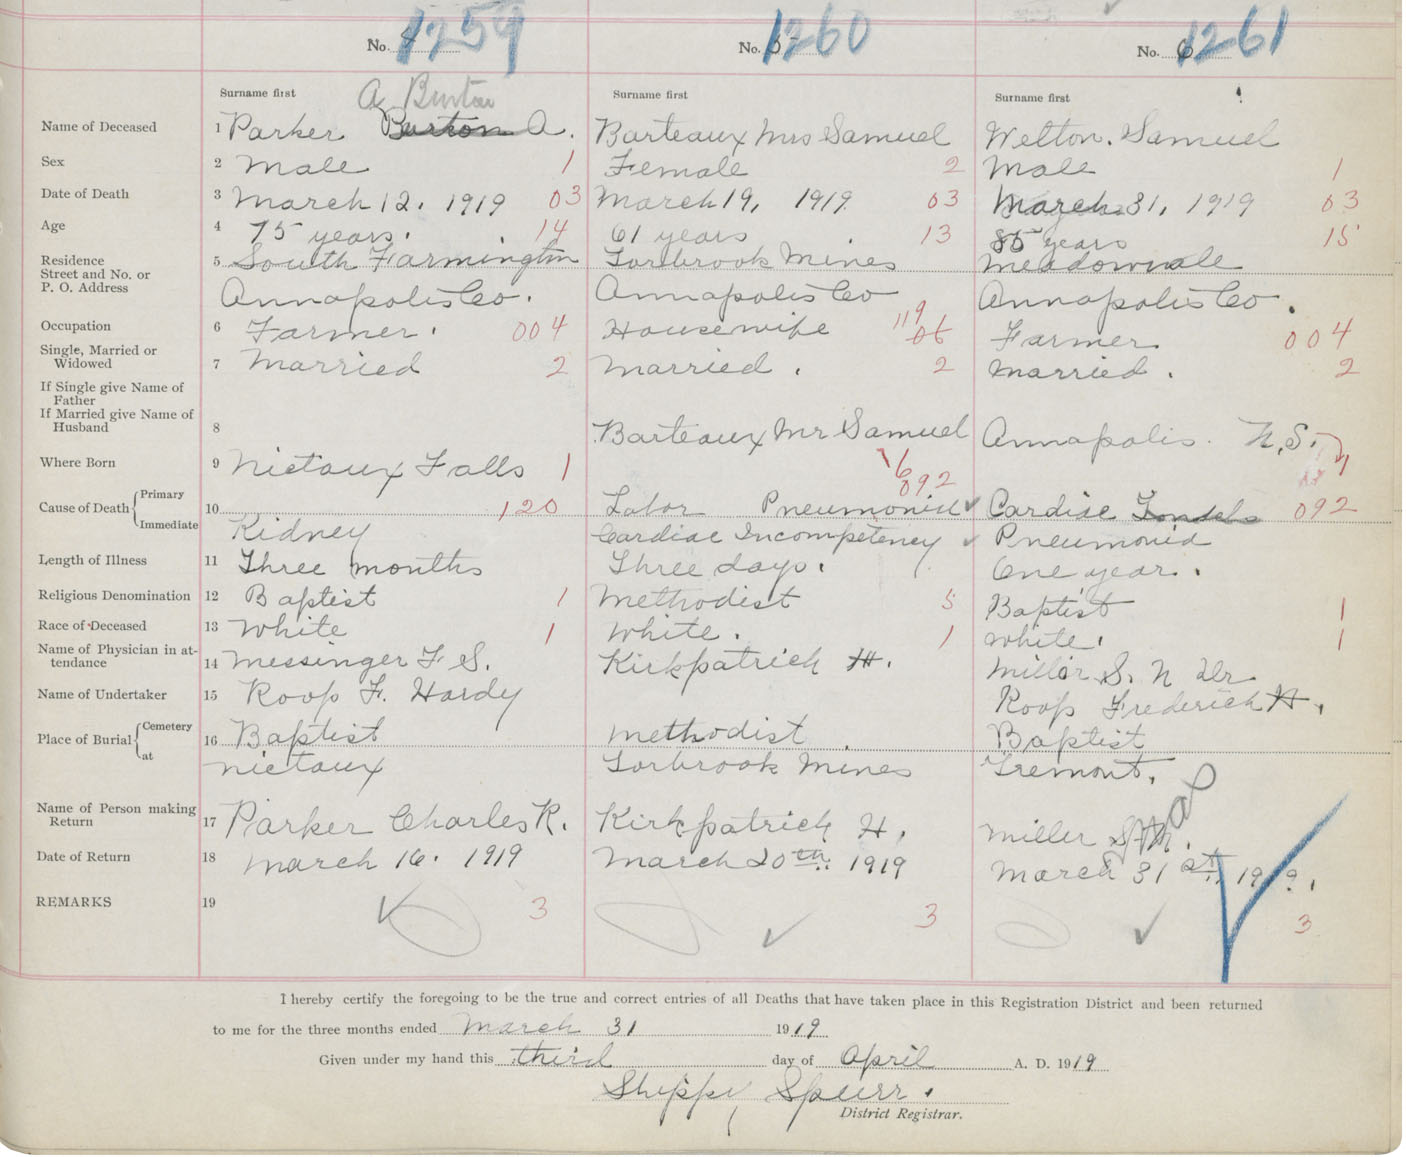 No. 4 1259 No. 5 1260 No. 6 1261
Surname first Surname first Surname first
A Burton
Name of Deceased 1 Parker Burton A. Barteaux Mrs Samuel Welton. Samuel
Sex 2 Male 1 Female 2 Male 1
Date of Death 3 March 12. 1919 03 March 19, 1919 03 March 31, 1919 03
Age 4 75 years. 14 61 years 13 85 years 15
Residence Street and No. or P. O. Address 5 South Farmington Torbrook Mines Meadowvale
Annapolis Co. Annapolis Co Annapolis Co.
Occupation 6 Farmer. 004 Housewife 119 06 Farmer. 004
Single, Married or Widowed 7 Married 2 Married. 2 Married. 2
If Single give Name of Father
If Married give Name of Husband 8 Barteaux Mr Samuel Annapolis. N.S. 1
Where Born 9 Nictaux Falls 1 1 6
092
Cause of Death { Primary 10 120 Labor Pneumonia Cardiac 092
Immediate Kidney Cardiac Incompetency Pneumonia
Length of Illness 11 Three months Three days. One year.
Religious Denomination 12 Baptist 1 Methodist 5 Baptist 1
Race of Deceased 13 White 1 White. 1 White. 1
Name of Physician in attendance 14 Messinger F. S. Kirkpatrick H. Miller S. N Dr
Name of Undertaker 15 Roop F. Hardy Roop Frederick H.
Place of Burial { Cemetery 16 Baptist Methodist. Baptist
at Nictaux Torbrook Mines Tremont.
Name of Person making Return 17 Parker Charles R. Kirkpatrick H. Miller S. N.
Date of Return 18 March 16. 1919 March 20th. 1919 March 31st. 1919.
REMARKS 19 3 3 3
I hereby certify the foregoing to be the true and correct entries of all Deaths that have taken place in this Registration District and been returned
to me for the three months ended March 31 1919
Given under my hand this third day of April A. D. 1919
Shippy Spurr.
District Registrar.